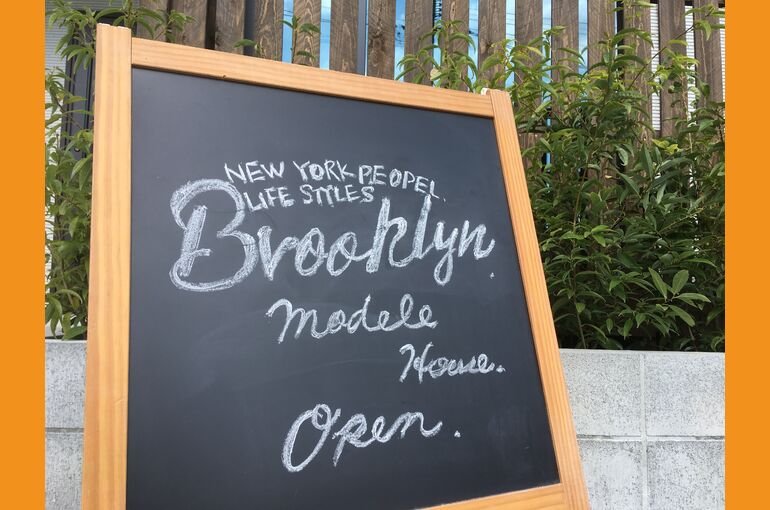 NEW YORK PEOPEL.
LIFE STYLES
Brooklyn.
modele
House.
Open.